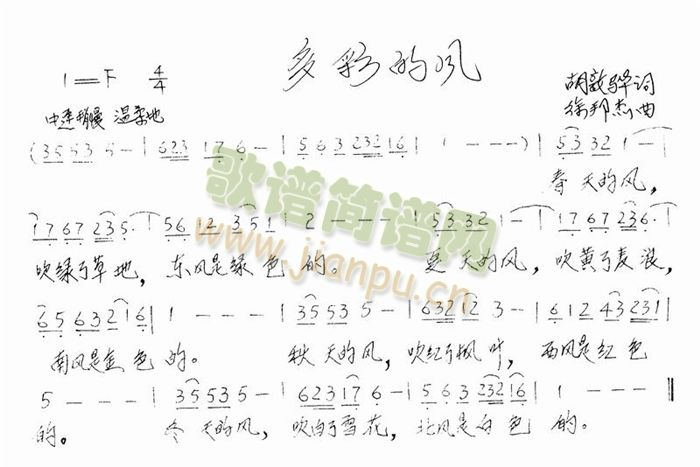 多彩的风
1=F 4/4
胡敦骅词
中速稍慢 温柔地
徐邦杰曲
(35535-|623176-|5636 32316|1---)|53321-|
春天的风，
1767235·|5612351|2---|53321-|1767236·|
吹绿了草地，东风是绿色的。夏天的风，吹黄了麦浪，
6563216|1---|355535-|632123-|61243231|
南风是金色的。秋天的风，吹红了枫叶，西风是红色
5---|355535-|623176-|563623216|1---‖
的。冬天的风，吹白了雪花，北风是白色的。
歌谱简谱网
www.jianpu.cn